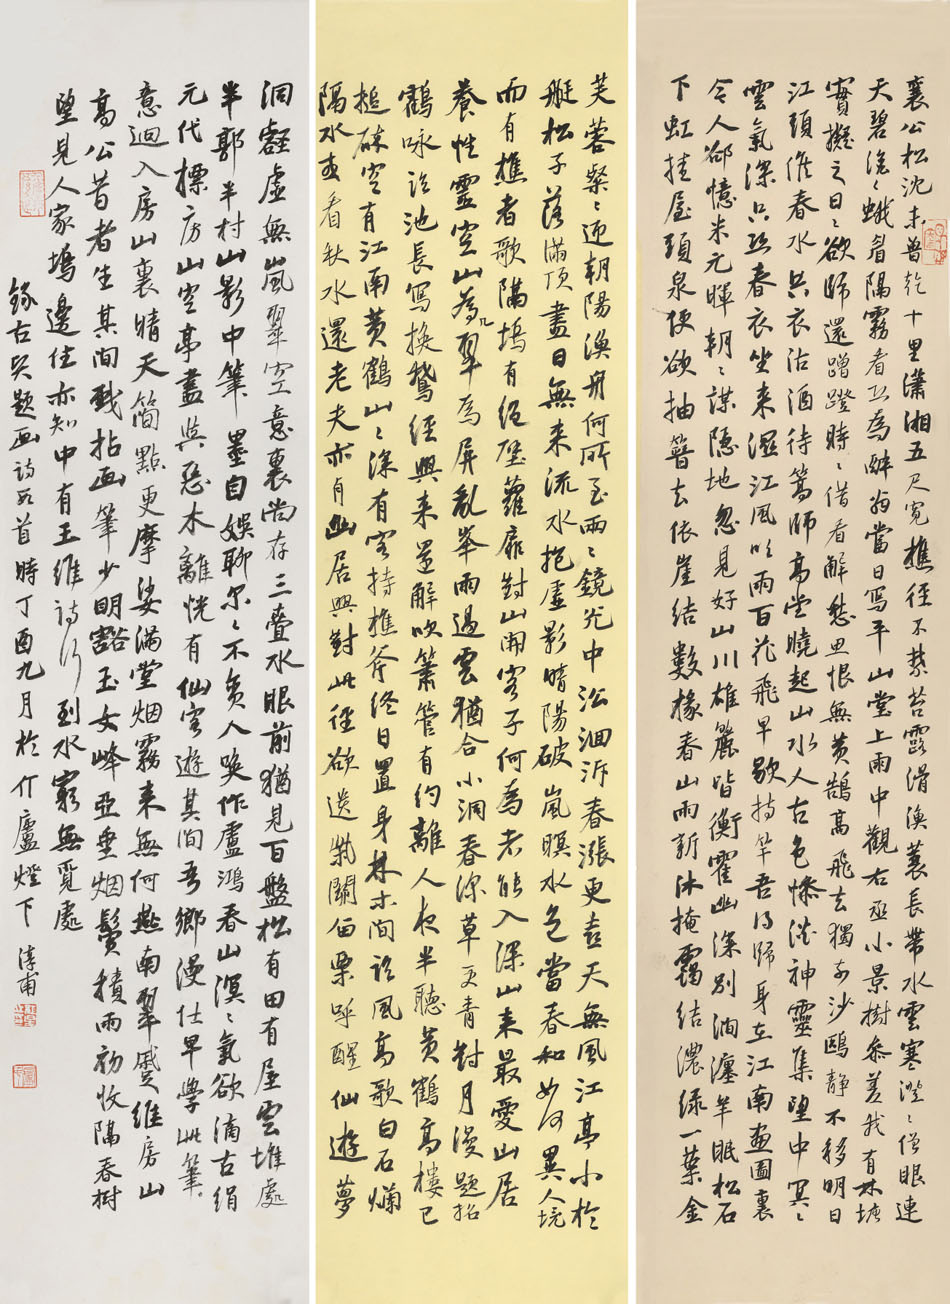 襄公松沈未曾乾十里瀟湘五尺寬樵徑不禁苔露滑漁蓑長帶水雲寒澄澄僧眼連
天碧淡淡蛾眉隔霧看頭為醉翁當日寫平山堂上雨中觀右丞小景樹參差我有林塘
實擬之日日欲歸還蹭蹬時時借看解愁思恨無黃鵠高飛去獨與沙鷗靜不移明日
江頭作春水典衣沽酒待篙師高堂曉起山水入古色慘淡神靈集望中冥冥
雲氣深只恐春衣坐來濕江風吹雨百花飛早歇持竿吾得歸身在江南畫圖裏
令人卻憶米元暉朝朝謀隱地忽見好山川雄麗皆衡霍幽深別澗瀍羊眠松石
下虹挂屋頭泉便欲抽簪去依崖結數椽春山雨新沐掩靄結濃綠一葉金
芙蓉粲粲迎朝陽漁舟何所至兩兩鏡光中沿洄泝春漲更喜天無風江亭小於
艇松子落滿頂盡日無來流水抱虛影晴陽破嵐暝水色當春和如何異人境
而有樵者歌隔塢有絕壁蘿扉對山開客子何為者能入深山來最愛山居
養性靈空山為几翠為屏亂峯雨過雲猶合小洞春深草更青對月漫題招
鶴咏臨池長寫換鵞經興來還解吹簫管有約離人夜半聽黃鶴高樓已
搥碎空有江南黃鶴山山深有客持樵斧終日置身林木間臨風高歌白石爛
隔水或看秋水還老夫亦有幽居興對此徑欲送紫關面栗呼醒仙遊夢
洞壑虛無嵐翠空意裏尚存三疊水眼前猶見百盤松有田有屋雲堆處
半郭半村山影中筆墨自娛聊爾爾不貪人喚作盧鴻春山溟溟氣欲滴古絹
元代標房山空亭盡與惡木離恍有仙客遊其間吾鄉漫仕早學此筆
意迴入房山裏晴天簡點更摩娑滿堂烟霧來無何燕南翠蹙維房山
高公昔者生其間戲拈画筆少明豁玉女峰亞垂烟鬟積雨初收隔春樹
望見人家塢邊住亦知中有王維詩行到水窮無覓處
錄古人題画詩九首時丁酉九月於介廬燈下淳甫